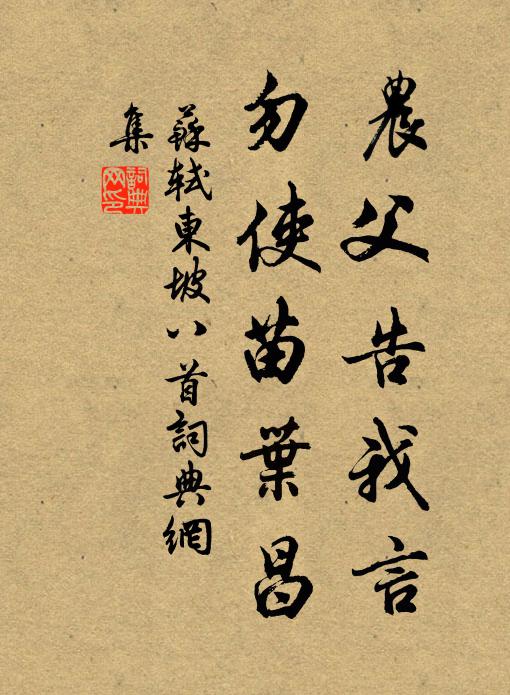 農父告我言
勿使苗葉昌
蘇軾東坡八首詞典網
集
詞典
网印